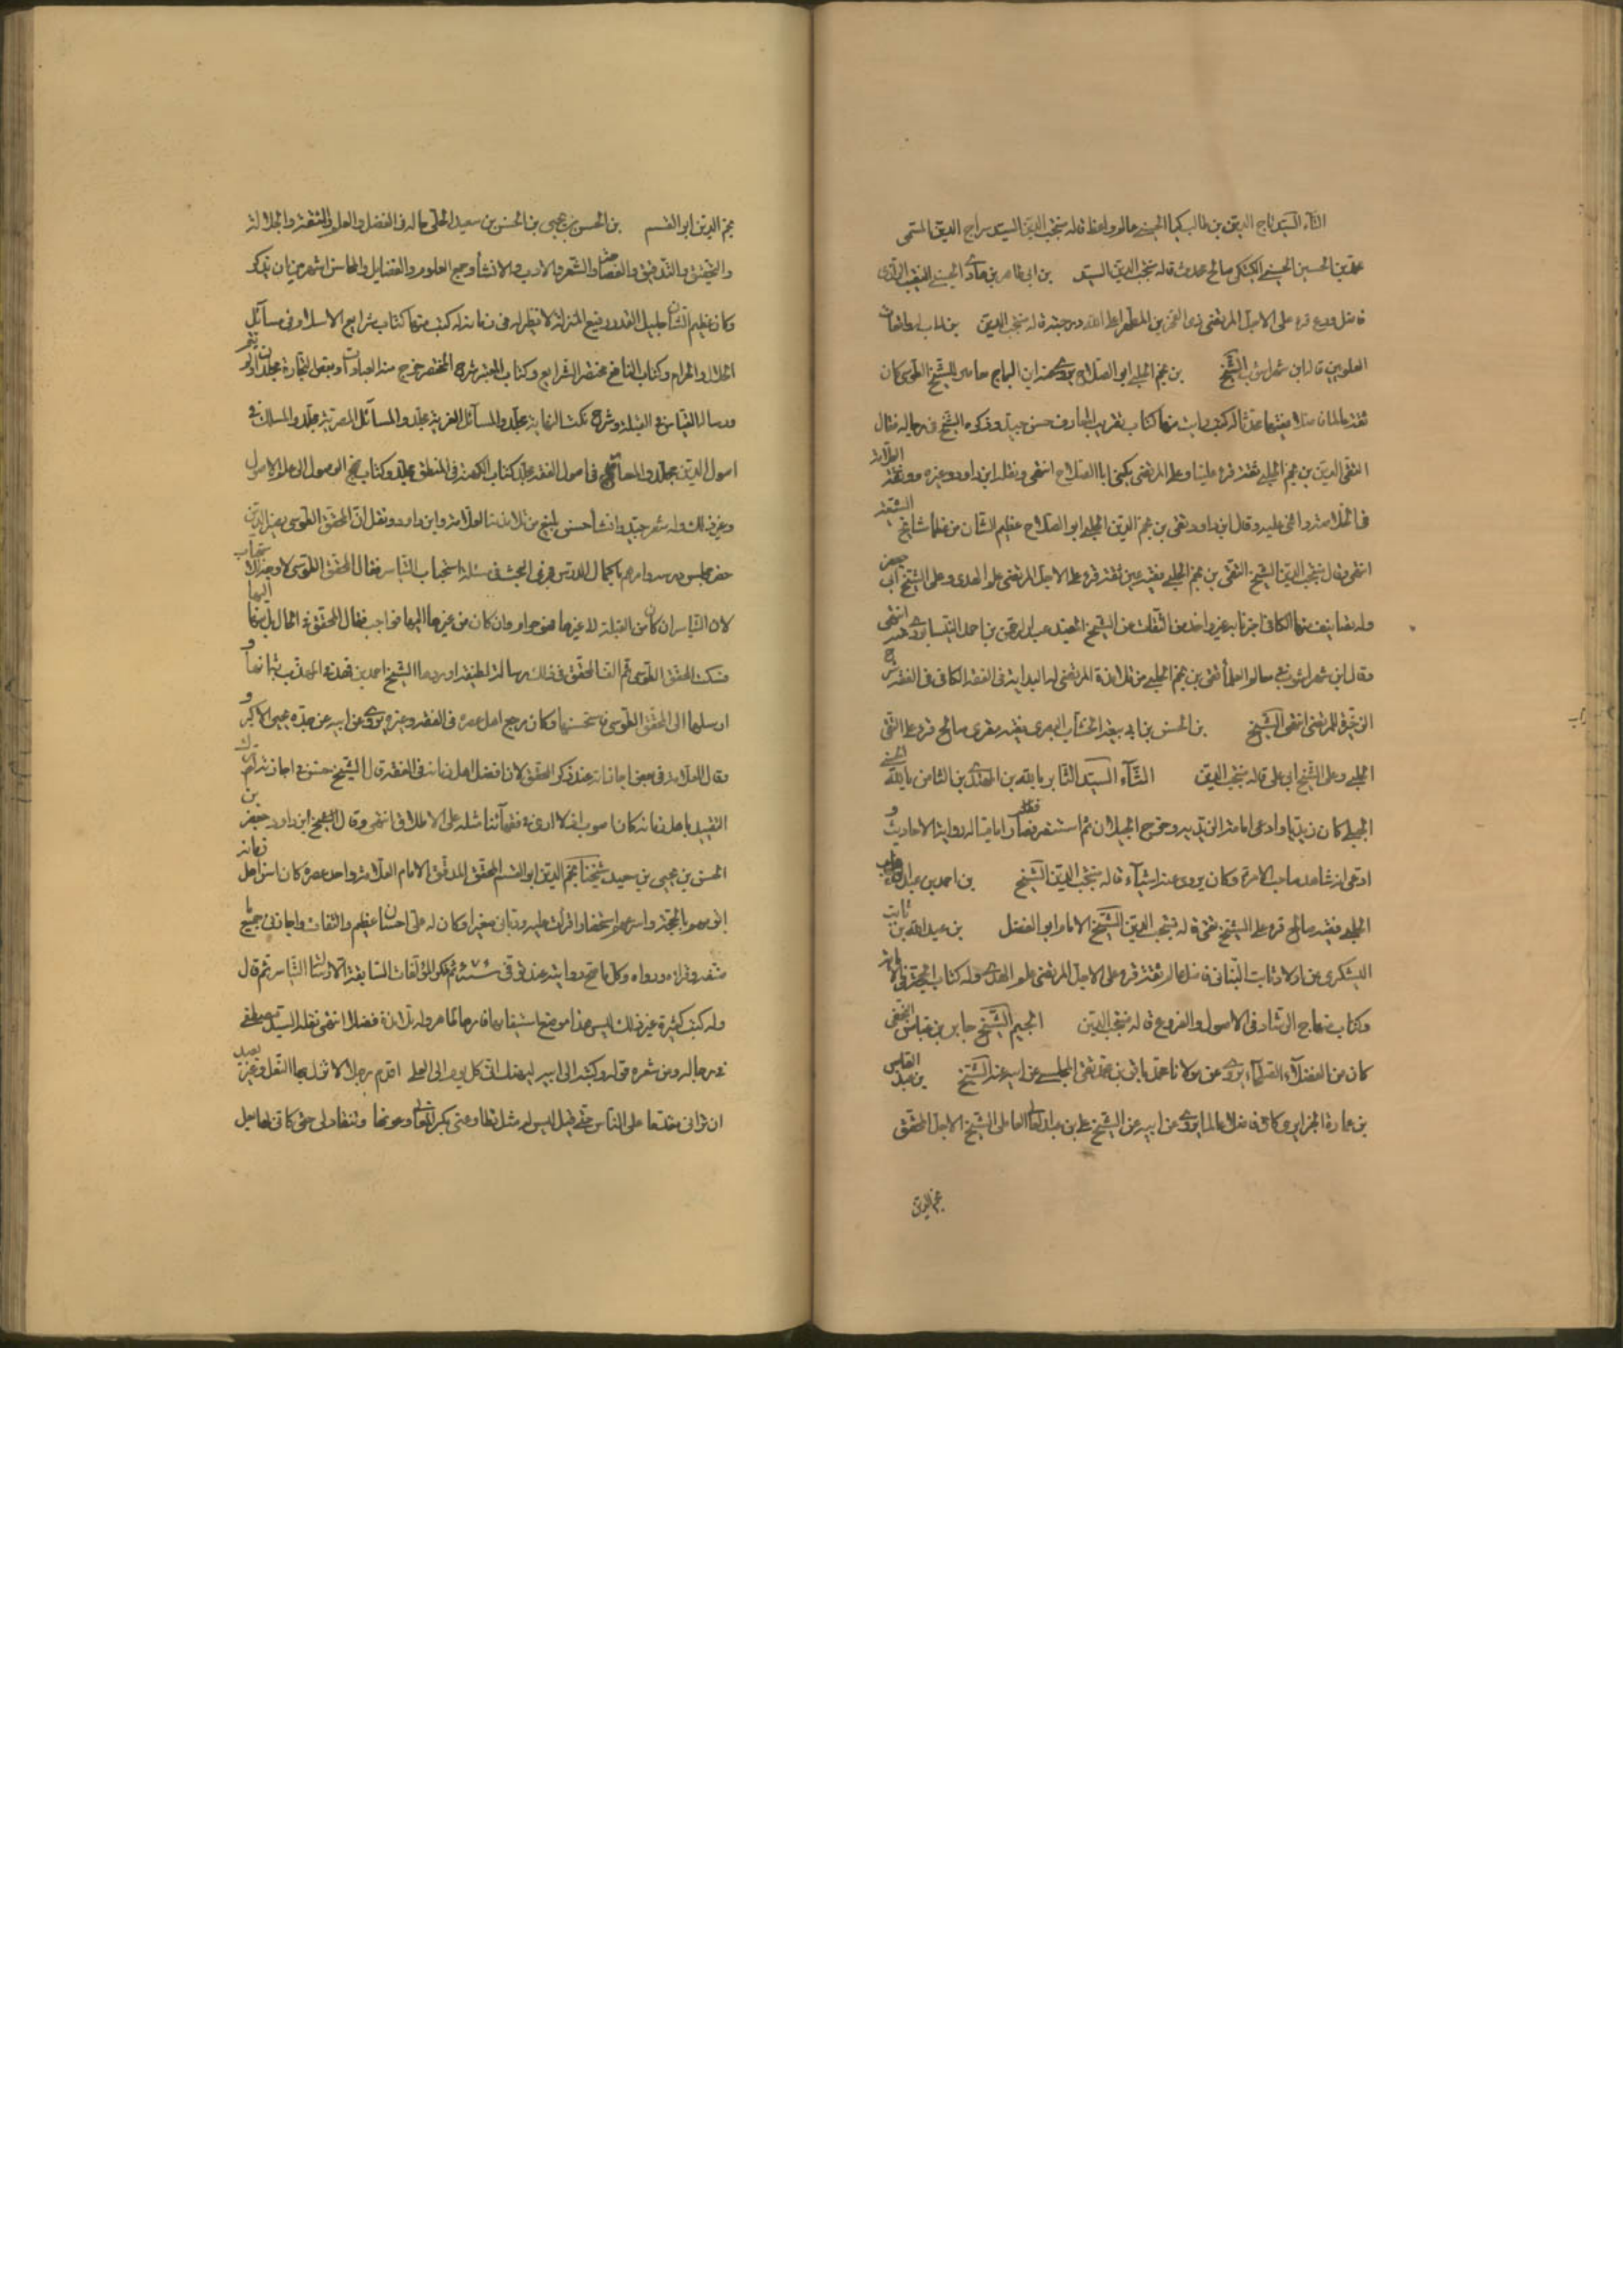 التاء السيد تاج الدين بن طالب كيا الحسيني عالم واعظ قاله منتجب الدين السيد سراج الدين المسمى
بن الحسين الحسيني صالح محدث قاله منتجب الدين السيد بن ابي طاهر بن هادي الحسيني النقيب
فاضل ورع قرء على الاجل المرتضى ذي الفخرين المطهر قاله منتجب الدين
العلويين قاله ابن شهراشوب الشيخ بن نجم الحلبي ابو الصلاح يروي عنه ابن البراج معاصر للشيخ الطوسي كان
ثقة عالما فاضلا فقيها محدثا له كتب رايت منها كتاب تقريب المعارف حسن جيد وذكره الشيخ في رجاله فقال
التقي بن نجم الحلبي ثقة قرء علينا وعلى المرتضى يكنى ابا الصلاح انتهى ونقله ابن داود وغيره ووثقه العلامة
في الخلاصة واثنى عليه وقال ابن داود تقي بن نجم الدين الحلبي ابو الصلاح عظيم الشان من عظماء مشايخ الشيعة
انتهى وقال منتجب الدين الشيخ التقي بن نجم الحلبي فقيه عين ثقة قرء على الاجل المرتضى علم الهدى وعلى الشيخ ابي جعفر
وله تصانيف منها الكافي اخبرنا به غير واحد من الثقات عن الشيخ المفيد عبد الرحمن بن احمد النيسابوري عنه انتهى
وقال ابن شهراشوب في معالم العلماء تقي بن نجم الحلبي من تلامذة المرتضى له البداية في الفقه الكافي في الفقه شرح
الذخيرة للمرتضى انتهى الشيخ بن الحسن بن ابي الخشاب البصري فقيه مقرئ صالح قرء على التقي
الحلبي وعلى الشيخ ابي علي قاله منتجب الدين الثاء السيد الثاير بالله بن المهدي بن الثاير بالله الحسني
الجيلي كان زيديا وادعى امامة الزيدية وخرج بجيلان ثم استبصر فصار اماميا له رواية الاحاديث و
ادعى انه شاهد صاحب الامر وكان يروي عنه اشياء قاله منتجب الدين الشيخ بن احمد بن عبد
الحلبي فقيه صالح قرء على الشيخ تقي قاله منتجب الدين الشيخ الامام ابو الفضل بن عبد الله بن ثابت
اليشكري من اولاد ثابت البناني فاضل عالم ثقة قرء على الاجل المرتضى علم الهدى وله كتاب الحجة في الامامة
وكتاب منهاج الرشاد في الاصول والفروع قاله منتجب الدين الجيم الشيخ جابر بن عباس النجفي
كان من الفضلاء الصلحاء يروي عن مولانا محمد باقر بن محمد تقي المجلسي عن ابيه عنه الشيخ بن عبد
بن عمارة الجزايري كان فاضلا عالما يروي عن ابيه عن الشيخ علي بن عبد العالي العاملي الشيخ الاجل المحقق
نجم الدين
نجم الدين ابو القسم بن الحسن بن يحيى بن الحسن بن سعيد الحلي حاله في الفضل والعلم والثقة والجلالة
والتحقيق والتدقيق والفصاحة والشعر والادب والانشاء وجميع العلوم والفضايل والمحاسن اشهر من ان يذكر
وكان عظيم الشان جليل القدر رفيع المنزلة لا نظير له في زمانه له كتب منها كتاب شرايع الاسلام في مسائل
الحلال والحرام وكتاب النافع مختصر الشرايع وكتاب المعتبر شرح المختصر خرج منه العبادات وبعض التجارة مجلدان لم يتم
ورسالة التياسر في القبلة وشرح نكت النهاية مجلد والمسائل الغرية مجلد والمسائل المصرية مجلد والمسلك في
اصول الدين مجلد والمعارج في اصول الفقه مجلد كتاب الكهنة في المنطق مجلد وكتاب نهج الوصول الى علم الاصول
وغير ذلك وله شعر جيد وانشاء حسن بليغ من تلامذته العلامة وابن داود ونقل ان المحقق الطوسي نصير الدين
حضر مجلس درسه وامرهم باكمال الدرس فجرى البحث في مسئلة استحباب التياسر فقال المحقق الطوسي لا وجه للاستحباب
لان التياسر ان كان من القبلة الى غيرها فهو حرام وان كان من غيرها اليها فواجب فقال المحقق في الحال بل منها اليها
فسكت المحقق الطوسي ثم الف المحقق في ذلك رسالة لطيفة اوردها الشيخ احمد بن فهد في المهذب بتمامها و
ارسلها الى المحقق الطوسي فاستحسنها وكان مرجع اهل عصره في الفقه وغيره يروي عن ابيه عن جده يحيى الاكبر و
وقال العلامة في بعض اجازاته عند ذكر المحقق كان افضل اهل زمانه في الفقه قال الشيخ حسن في اجازته لو ترك
التقييد باهل زمانه كان اصوب اذ لا ارى في فقهائنا مثله على الاطلاق انتهى وقال الشيخ ابن داود جعفر بن
الحسن بن يحيى بن سعيد شيخنا نجم الدين ابو القسم المحقق المدقق الامام العلامة واحد عصره كان السن اهل زمانه
واقومهم بالحجة واسرعهم استحضارا قرات عليه ورباني صغيرا وكان له علي احسان عظيم والتفات واجاز لي جميع ما
صنفه وقراه ورواه وكل ما تصح روايته عنه توفي في سنة ثم ذكر المؤلفات السابقة التياسر ثم قال
وله كتب كثيرة غير ذلك ليس هذا موضع استيفائها فامرها ظاهر وله تلامذة فضلا انتهى نقله السيد مصطفى
في رجاله ومن شعره قوله وكتبه الى ابيه ليهنك اني كل يوم الى العلى اقدم رجلا لا تزل بها النعل وغير بعيد
ان تراني مقدما على الناس حتى قيل ليس له مثل تطاوعني بكر المعاني وعونها وتنقاد لي حتى كاني لها بعل